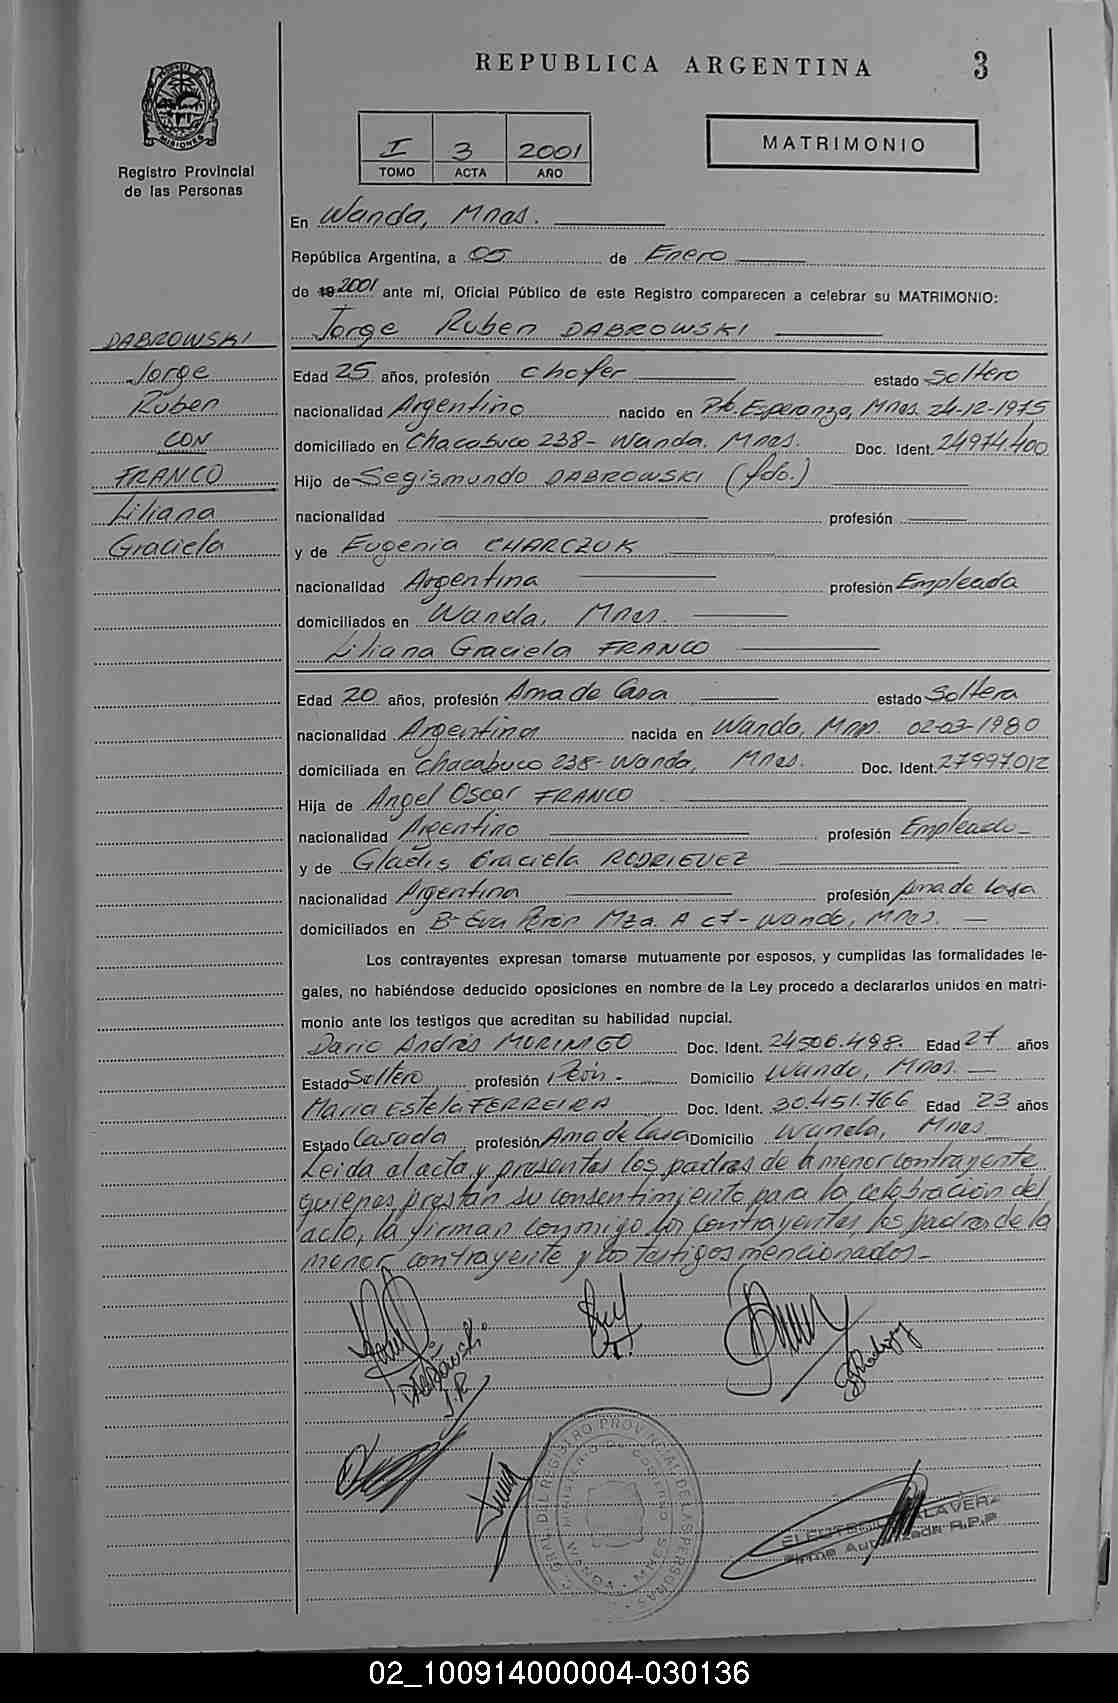 REPUBLICA ARGENTINA 3
PROVINCIA DE MISIONES
Registro Provincial
de las Personas
I 3 2001
TOMO ACTA AÑO
MATRIMONIO
DABROWSKI
Jorge
Rúben
CON
FRANCO
Liliana
Graciela
En Wanda, Mnes.
República Argentina, a 05 de Enero
de 19 2001 ante mí, Oficial Público de este Registro comparecen a celebrar su MATRIMONIO:
Jorge Ruben DABROWSKI
Edad 25 años, profesión chofer estado Soltero
nacionalidad Argentino nacido en Pto. Esperanza, Mnes. 24-12-1975
domiciliado en Chacabuco 238- Wanda. Mnes. Doc. Ident. 24974.400
Hijo de Segismundo DABROWSKI (fdo.)
nacionalidad profesión
y de Eugenia CHARCZUK
nacionalidad Argentina profesión Empleada
domiciliados en Wanda, Mnes.
Liliana Graciela FRANCO
Edad 20 años, profesión Ama de Casa estado Soltera
nacionalidad Argentina nacida en Wanda, Mnes. 02-03-1980
domiciliada en Chacabuco 238- Wanda, Mnes. Doc. Ident. 27997012
Hija de Angel Oscar FRANCO
nacionalidad Argentino profesión Empleado
y de Gladis Graciela RODRIGUEZ
nacionalidad Argentina profesión Ama de Casa
domiciliados en Bº Eva Perón Mza. A c7- Wanda, Mnes.
Los contrayentes expresan tomarse mutuamente por esposos, y cumplidas las formalidades le-
gales, no habiéndose deducido oposiciones en nombre de la Ley procedo a declararlos unidos en matri-
monio ante los testigos que acreditan su habilidad nupcial.
Dario Andrés MORINIGO Doc. Ident. 24506.498. Edad 27 años
Estado Soltero profesión Peón.- Domicilio Wanda, Mnes.
María Estela FERREIRA Doc. Ident. 30.451.766 Edad 23 años
Estado Casada profesión Ama de Casa Domicilio Wanda, Mnes.
Leida el acta y presentes los padres de la menor contrayente
quienes prestan su consentimiento para la celebración del
acto, la firman conmigo los contrayentes, los padres de la
menor contrayente y los testigos mencionados.-
Dabrowski
J.R.
GRAL DEL REGISTRO PROVINCIAL DE LAS PERSONAS
MINISTERIO DE GOBIERNO
WANDA
Firma Autorizada R.P.P.
02_100914000004-030136